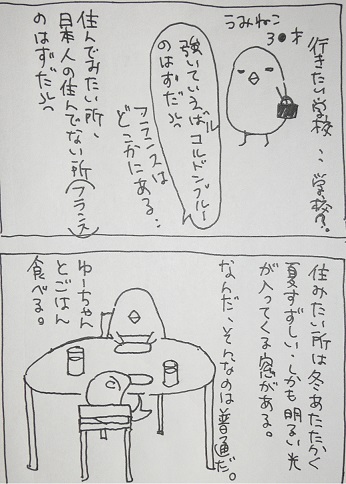 行きたい学校‥学校?。
うみねこ
3●才
強いていえばル コルドンブルー
のはずだ
フランスは
どこかにある‥
住んでみたい所、
日本人の住んでない所(フランス)
のはずだ
住みたい所は冬あたたかく
夏すずしい、しかも明るい光
が入ってくる窓がある。
なんだ、そんなのは普通だ。
ゆーちゃん
とごはん
食べる。